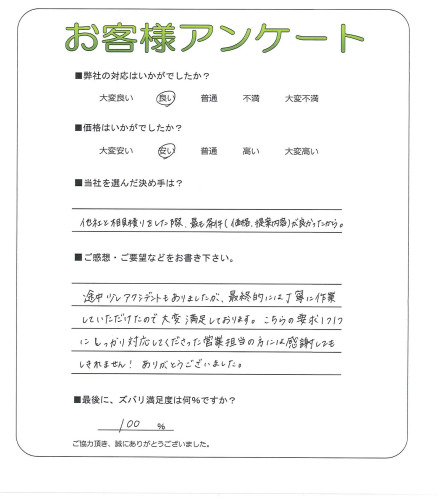 お客様アンケート
■弊社の対応はいかがでしたか？
大変良い　良い　普通　不満　大変不満
■価格はいかがでしたか？
大変安い　安い　普通　高い　大変高い
■当社を選んだ決め手は？
他社と相見積りをした際、最も条件（価格、提案内容）が良かったから。
■ご感想・ご要望などをお書き下さい。
途中少しアクシデントもありましたが、最終的には丁寧に作業
していただけたので大変満足しております。こちらの要求1つ1つ
にしっかり対応してくださった営業担当の方には感謝しても
しきれません！ありがとうございました。
■最後に、ズバリ満足度は何％ですか？
100 %
ご協力頂き、誠にありがとうございました。